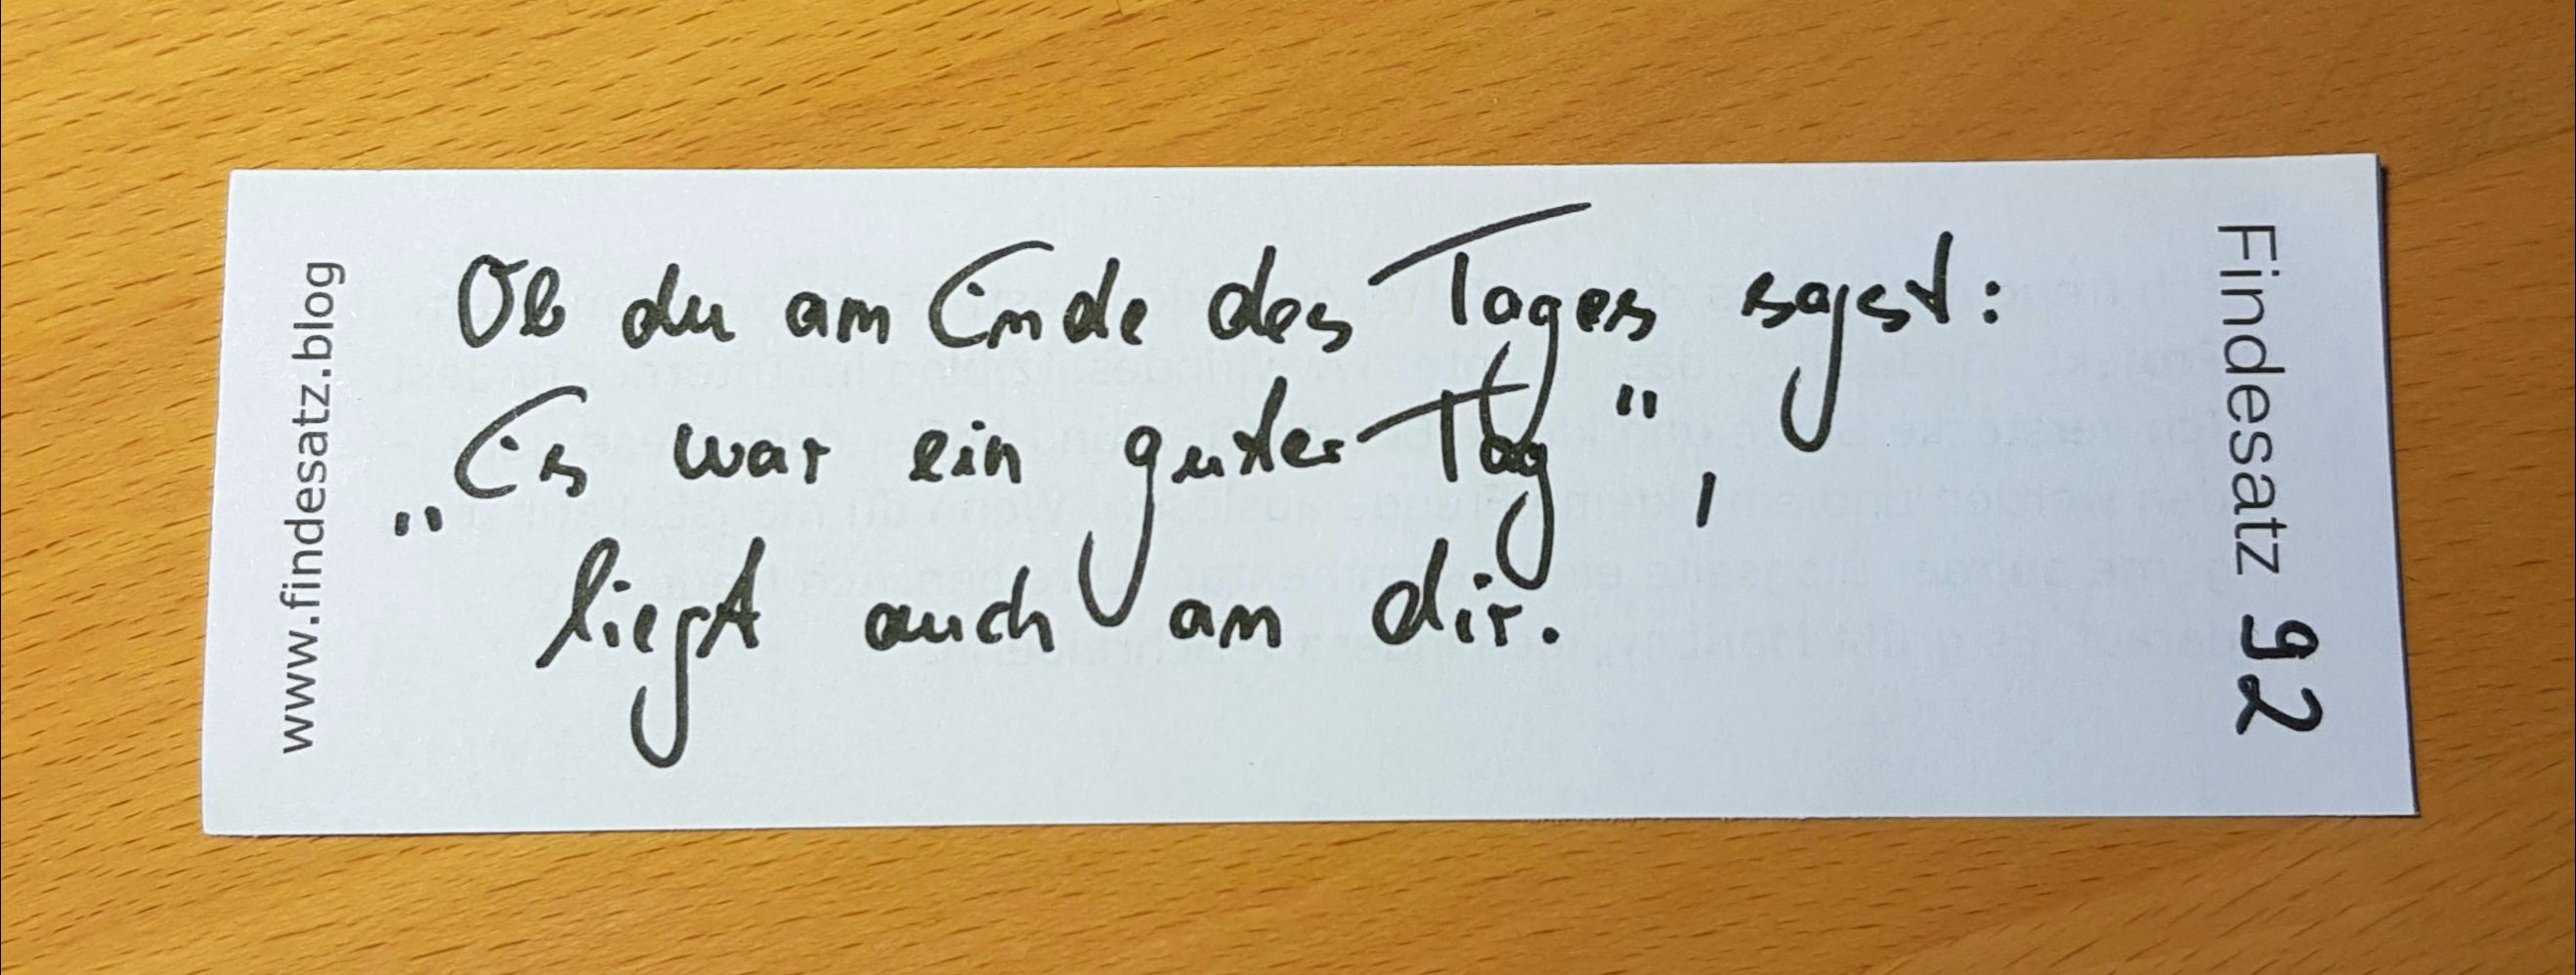 www.findesatz.blog
Ob du am Ende des Tages sagst:
„Es war ein guter Tag“,
liegt auch an dir.
Findesatz 92